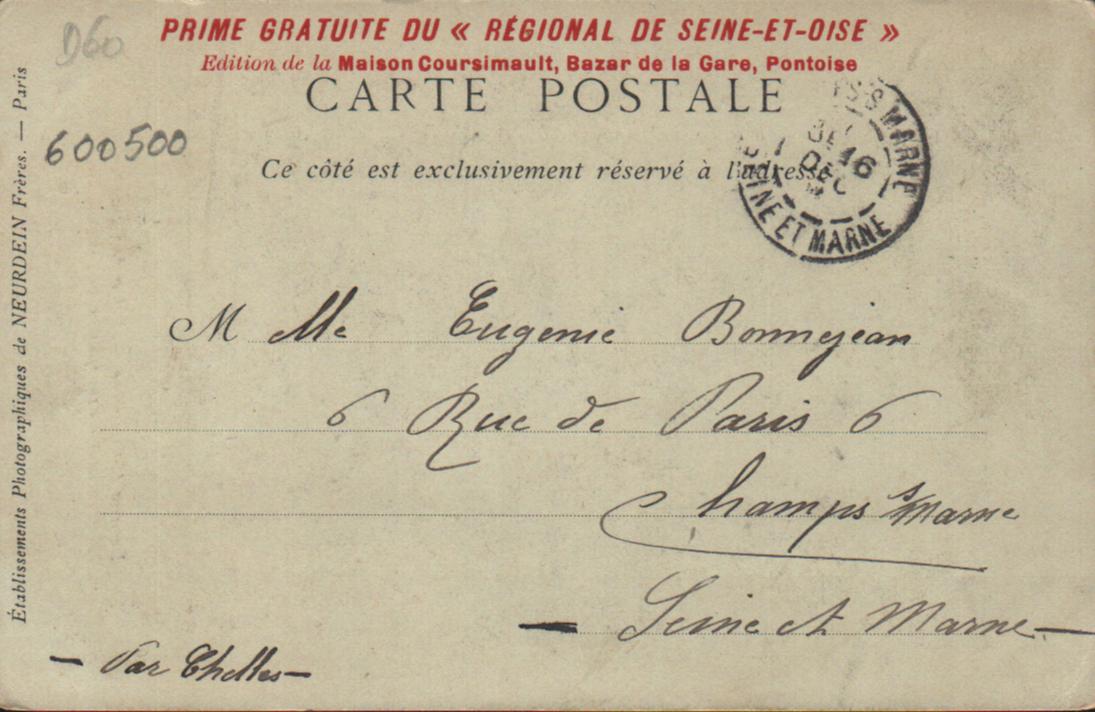 D60
PRIME GRATUITE DU « RÉGIONAL DE SEINE-ET-OISE »
Edition de la Maison Coursimault, Bazar de la Gare, Pontoise
CARTE POSTALE
600500
Ce côté est exclusivement réservé à l'adresse
S MARNE
16
DEC
INE ET MARNE
M Mlle Eugenie Bonnejean
6 Rue de Paris 6
Champs s/Marne
Seine et Marne
Par Chelles
Établissements Photographiques de NEURDEIN Frères. — Paris